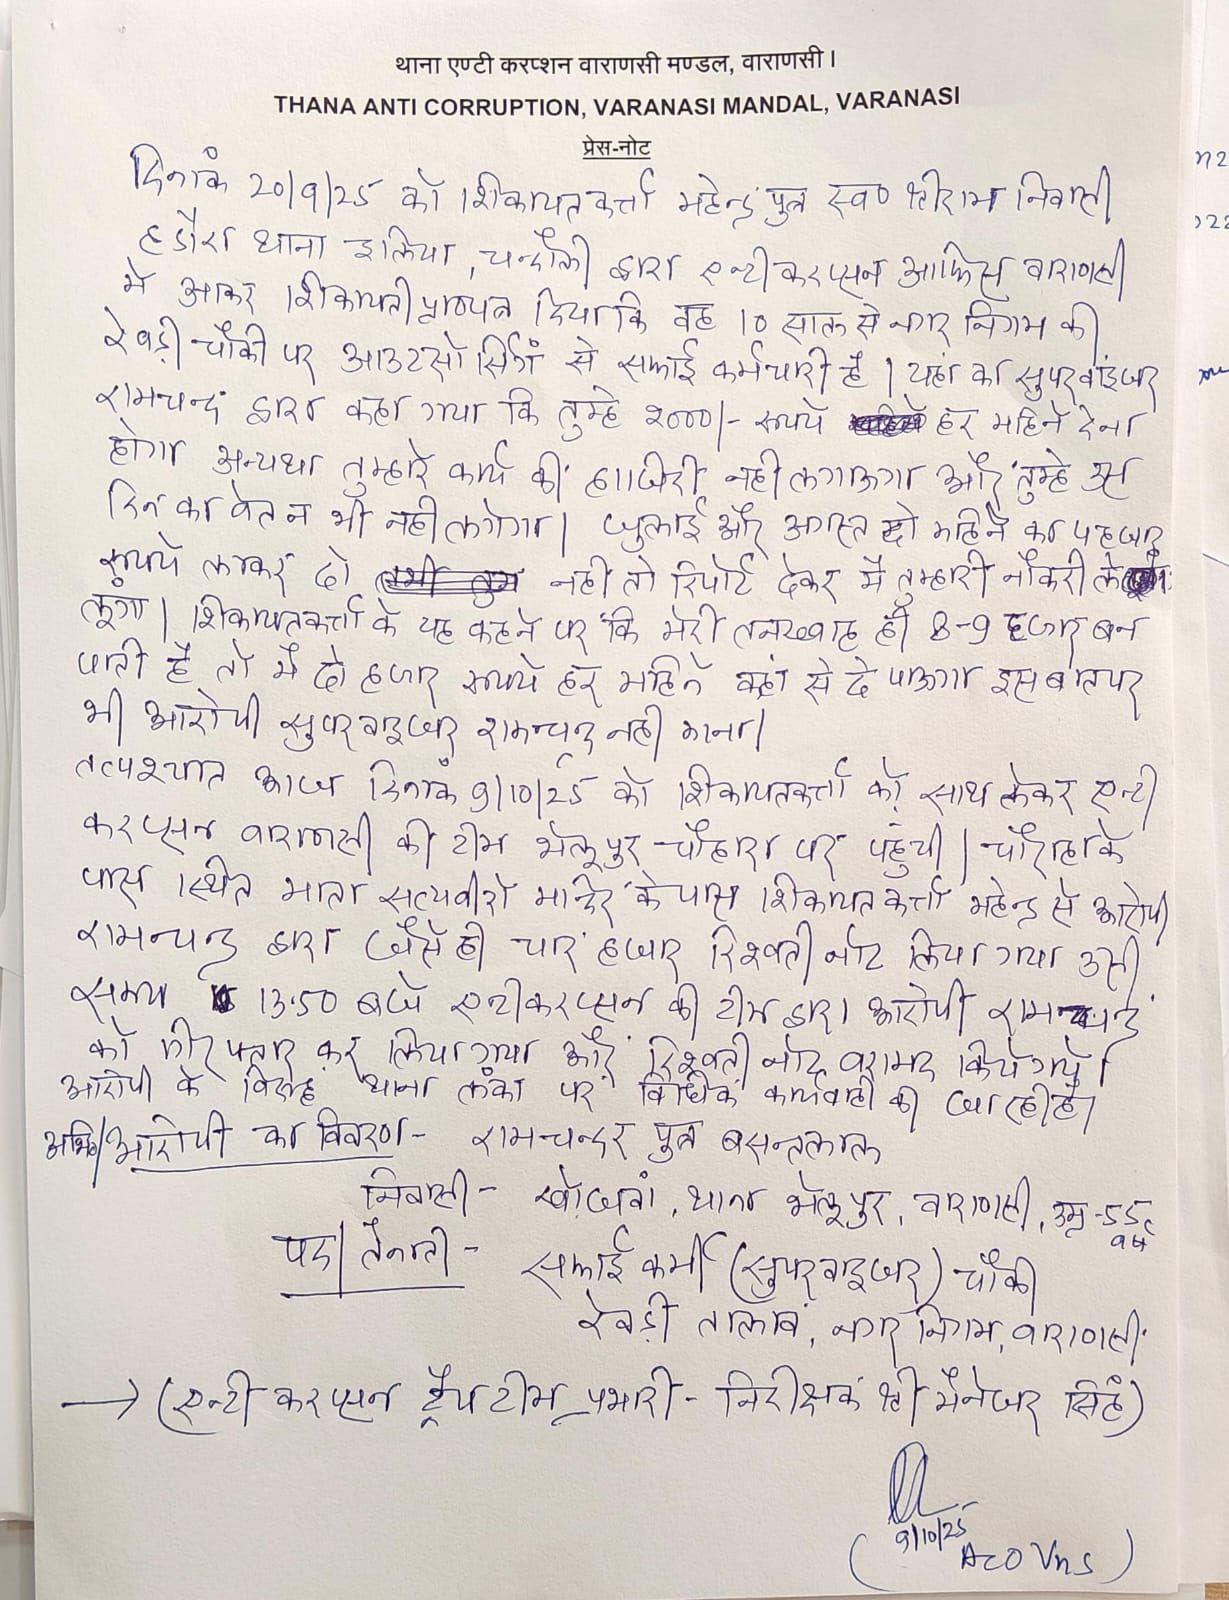 थाना एण्टी करप्शन वाराणसी मण्डल, वाराणसी ।
THANA ANTI CORRUPTION, VARANASI MANDAL, VARANASI
प्रेस-नोट
दिनांक 20/9/25 को शिकायतकर्त्ता महेन्द्र पुत्र स्व० श्रीराम निवासी
हडौरा थाना इलिया, चन्दौली द्वारा एन्टी करप्सन आफिस वाराणसी
मे आकर शिकायती प्रा०पत्र दिया कि वह 10 साल से नगर निगम की
रेवड़ी चौकी पर आउटसोर्सिगं से सफाई कर्मचारी है । यहां का सुपरवाइजर
रामचन्द्र द्वारा कहा गया कि तुम्हे 2000/- रूपये हर महिने देना
होगा अन्यथा तुम्हारे कार्य की हाजिरी नही लगाऊगा और तुम्हे उस
दिन का वेतन भी नही लगेगा। जुलाई और अगस्त दो महिने का हजार
रूपये लाकर दो नही तो रिपोर्ट देकर मै तुम्हारी नौकरी ले
लूंगा। शिकायतकर्त्ता के यह कहने पर कि मेरी तनख्वाह ही 8-9 हजार बन
पाती है तो मै दो हजार रूपये हर महिने कहां से दे पाऊगा इस बात पर
भी आरोपी सुपरवाइजर रामचन्द्र नही माना।
तत्पश्चात आज दिनांक 9/10/25 को शिकायतकर्त्ता को साथ लेकर एन्टी
करप्सन वाराणसी की टीम भेलूपुर चौहारा पर पहुंची। चौराहा के
पास स्थित माता मन्दिर के पास शिकायतकर्त्ता महेन्द्र से आरोपी
रामचन्द्र द्वारा जैसे ही चार हजार रिश्वती नोट लिया गया उसी
समय 13.50 बजे एन्टीकरप्सन की टीम द्वारा आरोपी रामचन्द्र
को गिरफ्तार कर लिया गया और रिश्वती नोट बरामद किये गये।
आरोपी के विरूद्ध थाना लंका पर विधिक कार्यवाही की जा रही है।
अभि०/आरोपी का विवरण- रामचन्दर पुत्र बसन्तलाल
निवासी- खोजवां, थाना भेलूपुर, वाराणसी, उम्र-55 वर्ष
पद/तैनाती- सफाई कर्मी (सुपरवाइजर) चौकी
रेवड़ी तालाब, नगर निगम, वाराणसी.
→ (एन्टी करप्सन ट्रैप टीम प्रभारी- निरीक्षक श्री मैनेजर सिंह)
9/10/25
(ACO Vns)